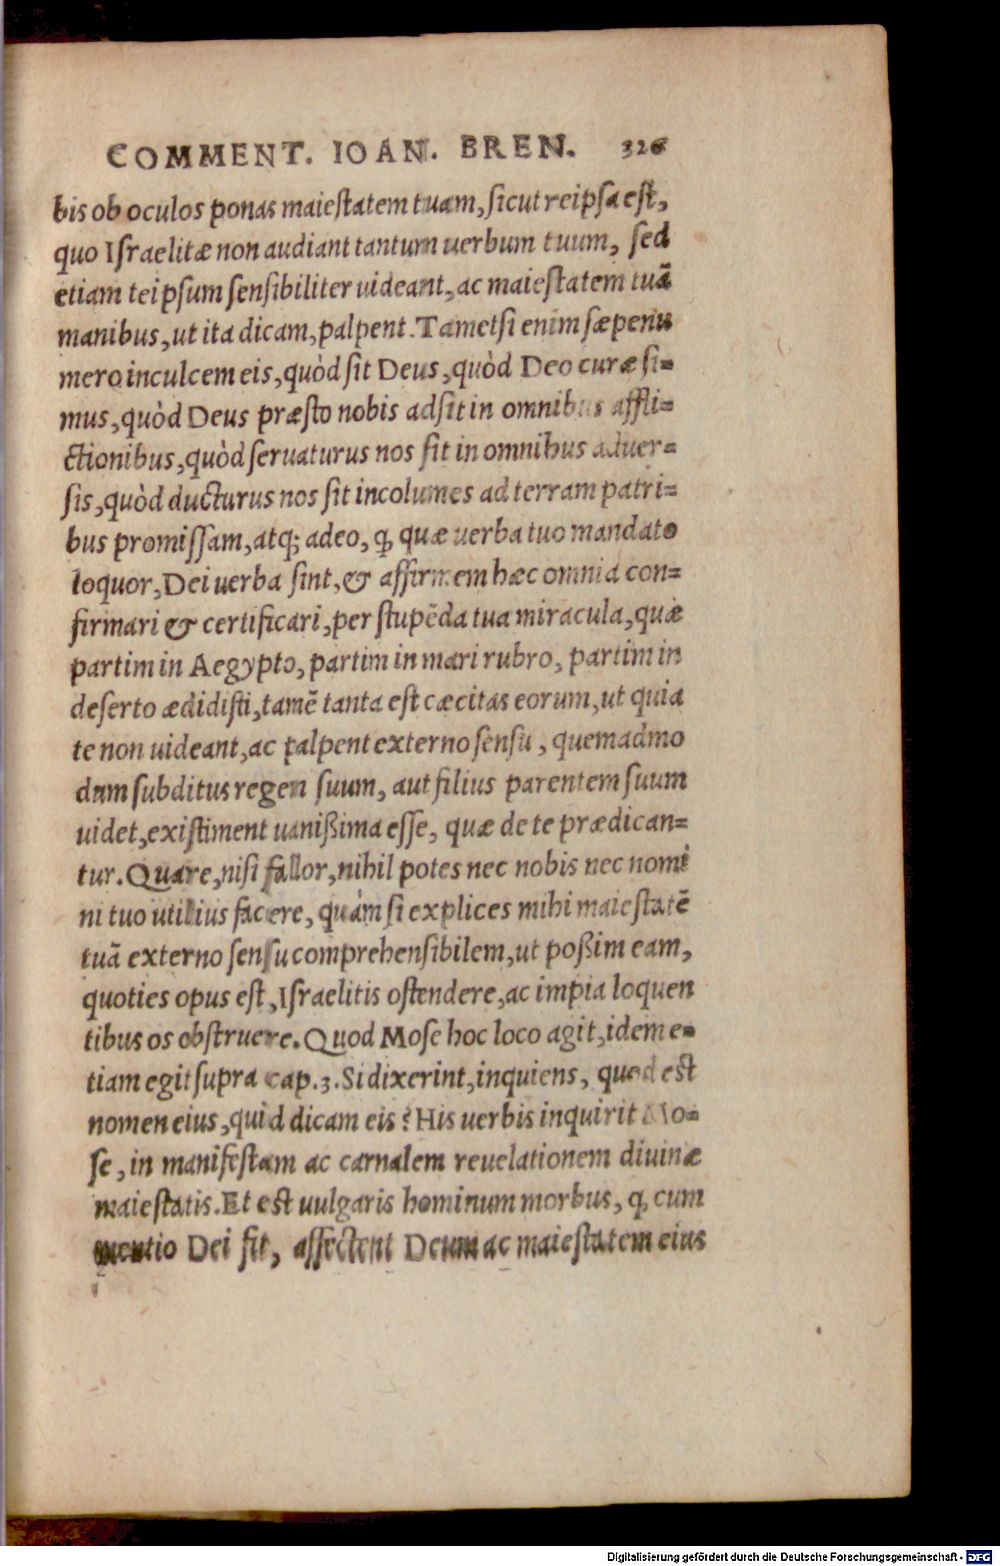 COMMENT. IOAN. BREN. 326
bis ob oculos ponas maiestatem tuam, sicut reipsa est,
quo Israelitæ non audiant tantum uerbum tuum, sed
etiam teipsum sensibiliter uideant, ac maiestatem tuã
manibus, ut ita dicam, palpent. Tametsi enim sæpenu
mero inculcem eis, quòd sit Deus, quòd Deo curæ si=
mus, quòd Deus præsto nobis adsit in omnibus affli=
ctionibus, quòd seruaturus nos sit in omnibus aduer=
sis, quòd ducturus nos sit incolumes ad terram patri=
bus promissam, atq; adeo, ꝙ quæ uerba tuo mandato
loquor, Dei uerba sint, & affirmem hæc omnia con=
firmari & certificari, per stupẽda tua miracula, quæ
partim in Aegypto, partim in mari rubro, partim in
deserto ædidisti, tamẽ tanta est cæcitas eorum, ut quia
te non uideant, ac palpent externo sensu, quemadmo
dum subditus regem suum, aut filius parentem suum
uidet, existiment uanißima esse, quæ de te prædican=
tur. Quare, nisi fallor, nihil potes nec nobis nec nomi
ni tuo utilius facere, quàm si explices mihi maiestatẽ
tuã externo sensu comprehensibilem, ut poßim eam,
quoties opus est, Israelitis ostendere, ac impia loquen
tibus os obstruere. Quod Mose hoc loco agit, idem e=
tiam egit supra cap. 3. Si dixerint, inquiens, quod est
nomen eius, quid dicam eis? His uerbis inquirit Mo=
se, in manifestam ac carnalem reuelationem diuinæ
maiestatis. Et est uulgaris hominum morbus, ꝙ cum
mentio Dei fit, affectent Deum ac maiestatem eius
Digitalisierung gefördert durch die Deutsche Forschungsgemeinschaft - DFG